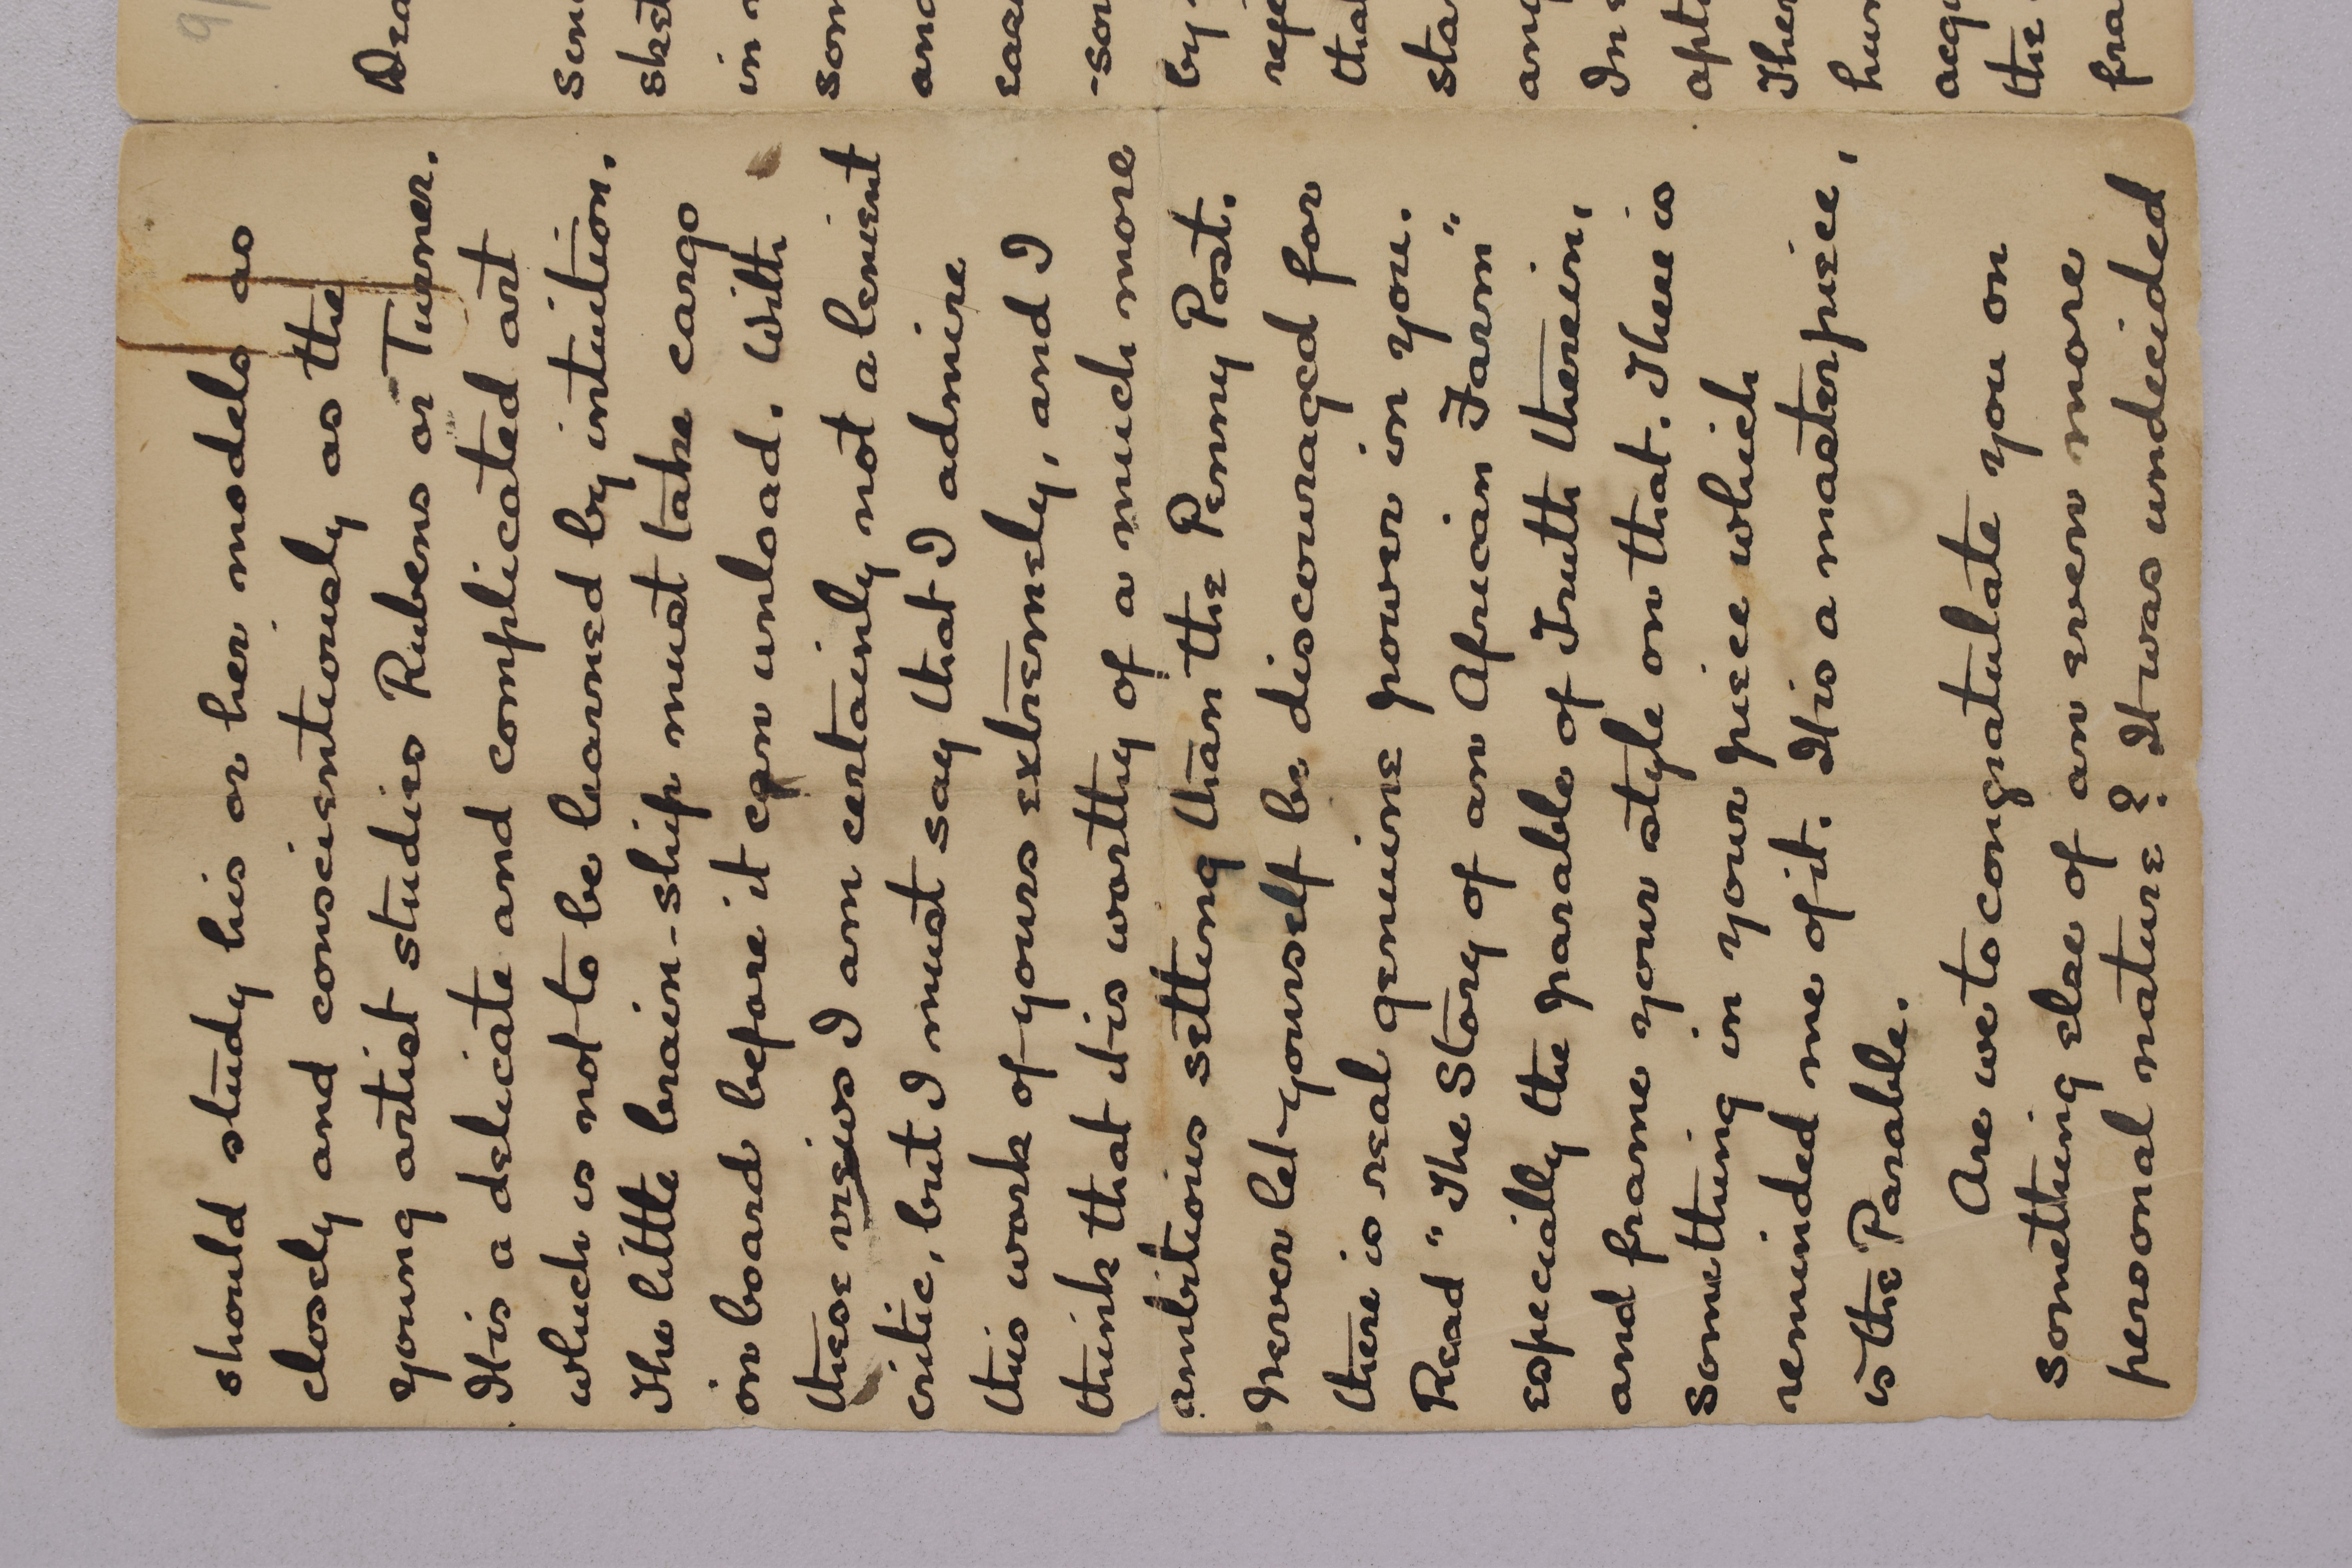 should study his or her models as
closely and conscientiously as the
young artist studies Rubens or Turner.
It is a delicate and complicated art
which is not to be learned by intuition.
The little brain-ship must take cargo
on board before it can unload. With
these views I am certainly not a lenient
critic, but I must say that I admire
this work of yours extremely, and I
think that it is worthy of a much more
ambitious setting than the Penny Post.
Never let yourself be discouraged for
there is real genuine power in you.
Read "The Story of an African Farm"
especially the parable of Truth therein,
and frame your style on that. There is
something in your piece which
reminded me of it. It is a masterpiece,
is the Parable.
Are we to congratulate you on
something else of an even more
personal nature? It was undecided
Dea
sket
in
som
and
-sor
by
refe
that
sta
In
apti
Ther
hum
acqu
the
fra